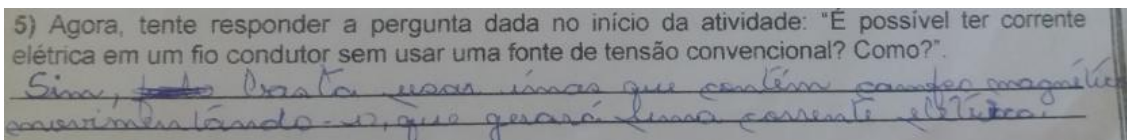 5) Agora, tente responder a pergunta dada no início da atividade: "É possível ter corrente
elétrica em um fio condutor sem usar uma fonte de tensão convencional? Como?".
Sim, basta usar imas que contêm campos magnético
movimentando-o, que gerará uma corrente elétrica.